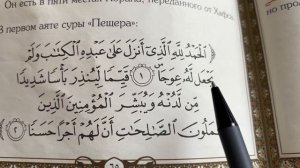 Он есть в пяти местах Корана, переданного от Хафса
В первом аяте суры «Пещера»:
ٱلْحَمْدُ لِلَّهِ ٱلَّذِىٓ أَنزَلَ عَلَىٰ عَبْدِهِ ٱلْكِتَٰبَ وَلَمْ
يَجْعَل لَّهُۥ عِوَجَا ١ قَيِّمًا لِّيُنذِرَ بَأْسًا شَدِيدًا
مِّن لَّدُنْهُ وَيُبَشِّرَ ٱلْمُؤْمِنِينَ ٱلَّذِينَ
يَعْمَلُونَ ٱلصَّٰلِحَٰتِ أَنَّ لَهُمْ أَجْرًا حَسَنًا ٢